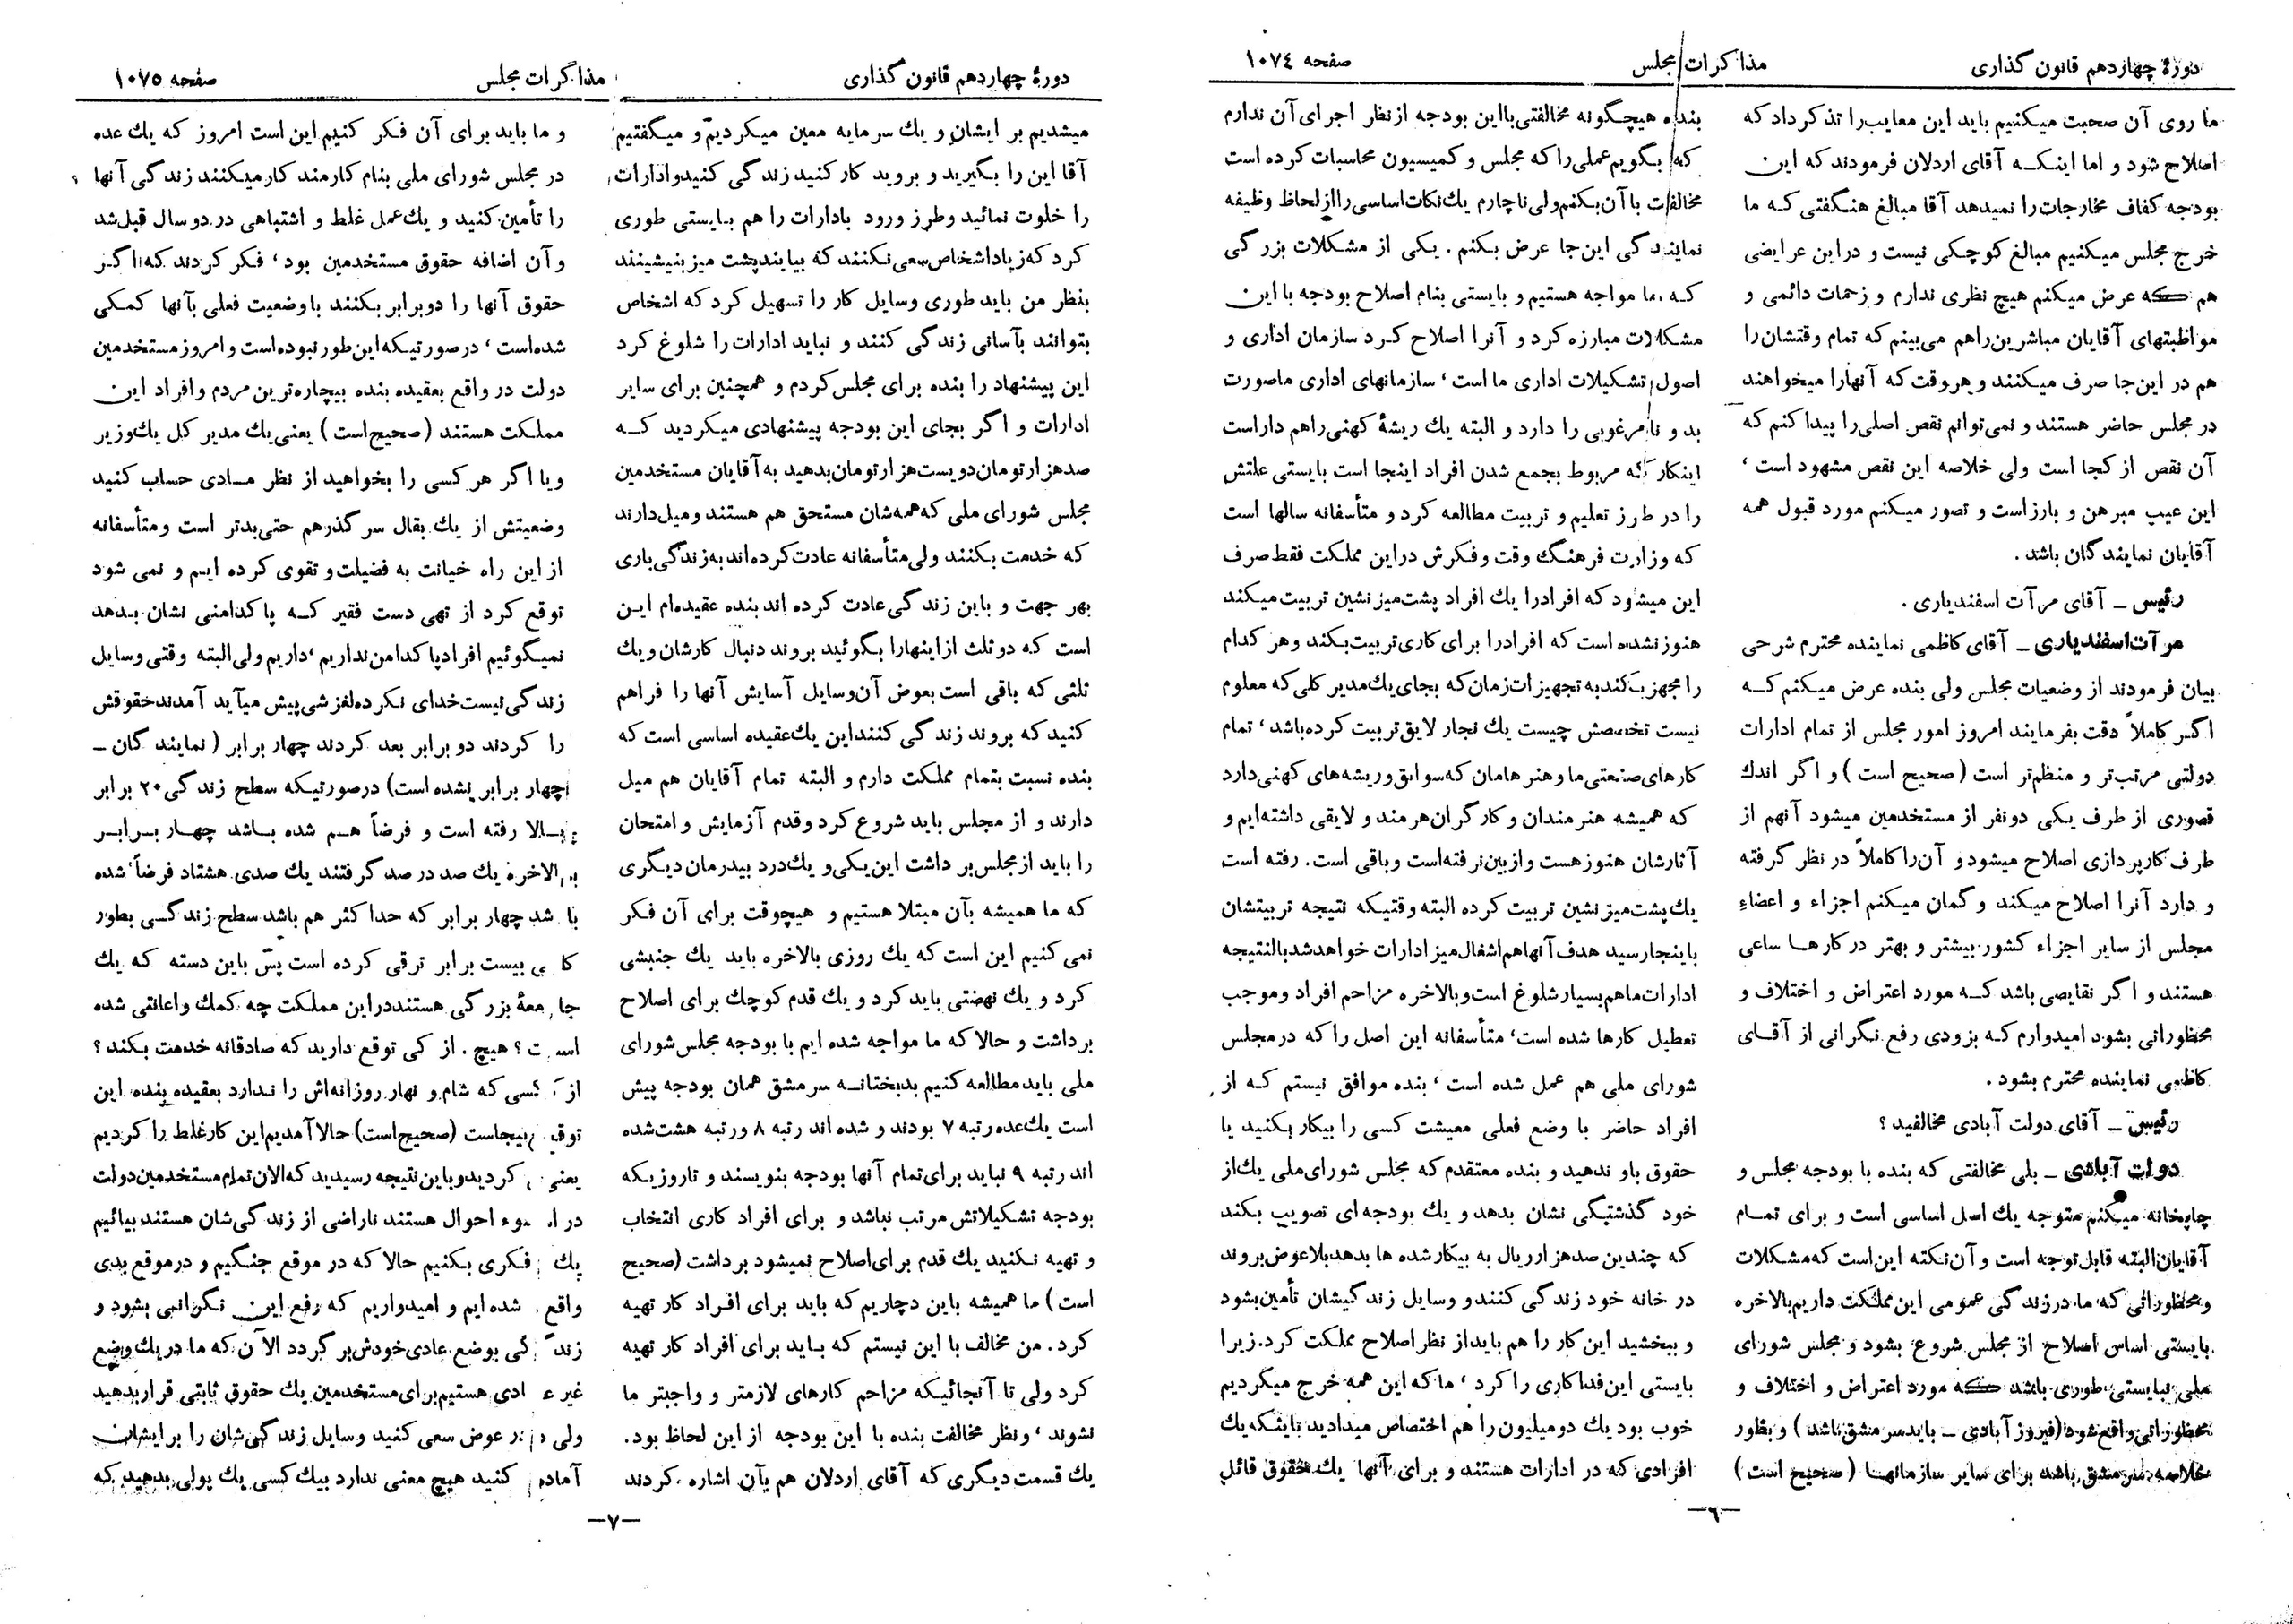 دورهٔ چهاردهم قانون گذاری
مذاکرات مجلس
صفحه ۱۰۷٤
ما روی آن صحبت میکنیم باید این معایب را تذکر داد که
اصلاح شود و اما اینکه آقای اردلان فرمودند که این
بودجه کفاف مخارجات را نمیدهد آقا مبالغ هنگفتی که ما
خرج مجلس میکنیم مبالغ کوچکی نیست و دراین عرایضی
هم که عرض میکنم هیچ نظری ندارم و زحمات دائمی و
مواظبتهای آقایان مباشرین راهم می‌بینم که تمام وقتشان را
هم در این‌جا صرف میکنند و هروقت که آنهارا میخواهند
در مجلس حاضر هستند و نمی‌توانم نقص اصلی را پیدا کنم که
آن نقص از کجا است ولی خلاصه این نقص مشهود است ،
این عیب مبرهن و بارز است و تصور میکنم مورد قبول همه
آقایان نمایندگان باشد .
رئیس ـ آقای مرآت اسفندیاری .
مرآت اسفندیاری ـ آقای کاظمی نماینده محترم شرحی
بیان فرمودند از وضعیات مجلس ولی بنده عرض میکنم که
اگر کاملاً دقت بفرمایند امروز امور مجلس از تمام ادارات
دولتی مرتب‌تر و منظم‌تر است (صحیح است) و اگر اندك
قصوری از طرف یکی دونفر از مستخدمین میشود آنهم از
طرف کارپردازی اصلاح میشود و آن‌را کاملاً در نظر گرفته
و دارد آنرا اصلاح میکند و گمان میکنم اجزاء و اعضاء
مجلس از سایر اجزاء کشور بیشتر و بهتر درکارها ساعی
هستند و اگر نقایصی باشد که مورد اعتراض و اختلاف و
محظوراتی بشود امیدوارم که بزودی رفع نگرانی از آقای
کاظمی نماینده محترم بشود .
رئیس ـ آقای دولت آبادی مخالفید ؟
دولت آبادی ـ بلی مخالفتی که بنده با بودجه مجلس و
چاپخانه میکنم متوجه یك اصل اساسی است و برای تمام
آقایان البته قابل توجه است و آن نکته این‌است که مشکلات
و محظوراتی که ما درزندگی عمومی این مملکت داریم بالاخره
بایستی اساس اصلاح از مجلس شروع بشود و مجلس شورای
ملی بایستی طوری باشد که مورد اعتراض و اختلاف و
محظوراتی واقع نشود (فیروزآبادی ـ باید سرمشق باشد) و بطور
خلاصه سرمشق باشد برای سایر سازمانها (صحیح است)
بنده هیچگونه مخالفتی بااین بودجه ازنظر اجرای آن ندارم
که بگویم عملی را که مجلس و کمیسیون محاسبات کرده است
مخالفت باآن بکنم ولی ناچارم یك نکات اساسی را از لحاظ وظیفه
نمایندگی این‌جا عرض بکنم . یکی از مشکلات بزرگی
که ما مواجه هستیم و بایستی بنام اصلاح بودجه با این
مشکلات مبارزه کرد و آنرا اصلاح کرد سازمان اداری و
اصول تشکیلات اداری ما است ، سازمانهای اداری ماصورت
بد و نامرغوبی را دارد و البته یك ریشهٔ کهنی راهم داراست
اینکار که مربوط بجمع شدن افراد اینجا است بایستی علتش
را در طرز تعلیم و تربیت مطالعه کرد و متأسفانه سالها است
که وزارت فرهنگ وقت وفکرش دراین مملکت فقط صرف
این میشود که افرادرا یك افراد پشت‌میزنشین تربیت میکند
هنوز نشده است که افرادرا برای کاری تربیت بکند وهر کدام
را مجهز بکند به تجهیزات زمان که بجای یك مدیر کلی که معلوم
نیست تخصصش چیست یك نجار لایق تربیت کرده باشد ، تمام
کارهای صنعتی ما و هنرهامان که سوابق وریشه‌های کهنی دارد
که همیشه هنرمندان و کارگران هرمند و لایقی داشته‌ایم و
آثارشان هنوز هست و ازبین نرفته است وباقی است . رفته است
یك پشت‌میزنشین تربیت کرده البته وقتیکه نتیجه تربیتشان
باینجا رسید هدف آنها هم اشغال میز ادارات خواهد شد بالنتیجه
ادارات ماهم بسیار شلوغ است و بالاخره مزاحم افراد وموجب
تعطیل کارها شده است، متأسفانه این اصل را که درمجلس
شورای ملی هم عمل شده است ، بنده موافق نیستم که از
افراد حاضر با وضع فعلی معیشت کسی را بیکار بکنید یا
حقوق باو ندهید و بنده معتقدم که مجلس شورای ملی یك از
خود گذشتگی نشان بدهد و یك بودجه‌ای تصویب بکند
که چندین صدهزار ریال به بیکار شده ها بدهد بلاعوض بروند
در خانه خود زندگی کنند و وسایل زندگیشان تأمین بشود
و ببخشید این کار را هم باید از نظر اصلاح مملکت کرد. زیرا
بایستی این فداکاری را کرد ، ما که این همه خرج میگردیم
خوب بود یك دو میلیون را هم اختصاص میدادید باینکه یك
افرادی که در ادارات هستند و برای آنها یك حقوق قائل
ـ٦ـ
دورهٔ چهاردهم قانون گذاری
مذاکرات مجلس
صفحه ۱۰۷٥
میشدیم بر ایشان و یك سرمایه معین میکردیم و میگفتیم
آقا این را بگیرید و بروید کار کنید زندگی کنید و ادارات
را خلوت نمائید وطرز ورود بادارات را هم بایستی طوری
کرد که زیاد اشخاص سعی نکنند که بیایند پشت میز بنیشینند
بنظر من باید طوری وسایل کار را تسهیل کرد که اشخاص
بتوانند بآسانی زندگی کنند و نباید ادارات را شلوغ کرد
این پیشنهاد را بنده برای مجلس کردم و همچنین برای سایر
ادارات و اگر بجای این بودجه پیشنهادی میکردید که
صدهزارتومان دویست هزارتومان بدهید به آقایان مستخدمین
مجلس شورای ملی که همه‌شان مستحق هم هستند ومیل دارند
که خدمت بکنند ولی متأسفانه عادت کرده‌اند به زندگی باری
بهر جهت و باین زندگی عادت کرده اند بنده عقیده‌ام این
است که دو ثلث ازاینهارا بگوئید بروند دنبال کارشان ویك
ثلثی که باقی است بعوض آن وسایل آسایش آنها را فراهم
کنید که بروند زندگی کنند این یك عقیده اساسی است که
بنده نسبت بتمام مملکت دارم و البته تمام آقایان هم میل
دارند و از مجلس باید شروع کرد وقدم آزمایش و امتحان
را باید از مجلس بر داشت این یکی و یك درد بیدرمان دیگری
که ما همیشه بآن مبتلا هستیم و هیچوقت برای آن فکر
نمی کنیم این است که یك روزی بالاخره باید یك جنبشی
کرد و یك نهضتی باید کرد و یك قدم کوچك برای اصلاح
برداشت و حالا که ما مواجه شده ایم با بودجه مجلس شورای
ملی باید مطالعه کنیم بدبختانه سرمشق همان بودجه پیش
است یك عده رتبه ۷ بودند و شده اند رتبه ۸ ورتبه هشت شده
اند رتبه ۹ نباید برای تمام آنها بودجه بنویسند و تاروزیکه
بودجه تشکیلاتش مرتب نباشد و برای افراد کاری انتخاب
و تهیه نکنید یك قدم برای اصلاح نمیشود برداشت (صحیح
است) ما همیشه باین دچاریم که باید برای افراد کار تهیه
کرد . من مخالف با این نیستم که باید برای افراد کار تهیه
کرد ولی تا آنجائیکه مزاحم کارهای لازمتر و واجبتر ما
نشوند ، ونظر مخالفت بنده با این بودجه از این لحاظ بود.
یك قسمت دیگری که آقای اردلان هم بآن اشاره کردند
و ما باید برای آن فکر کنیم این است امروز که یك عده
در مجلس شورای ملی بنام کارمند کار میکنند زندگی آنها
را تأمین کنید و یك عمل غلط و اشتباهی در دو سال قبل شد
و آن اضافه حقوق مستخدمین بود ، فکر کردند که اگر
حقوق آنها را دوبرابر بکنند باوضعیت فعلی بآنها کمکی
شده‌است ، درصورتیکه این طور نبوده است و امروز مستخدمین
دولت در واقع بعقیده بنده بیچاره‌ترین مردم وافراد این
مملکت هستند (صحیح است) یعنی یك مدیر کل یك وزیر
ویا اگر هر کسی را بخواهید از نظر مادی حساب کنید
وضعیتش از یك بقال سر گذرهم حتی بدتر است ومتأسفانه
از این راه خیانت به فضیلت و تقوی کرده ایم و نمی شود
توقع کرد از تهی دست فقیر که پاکدامنی نشان بدهد
نمیگوئیم افراد پاکدامن نداریم ، داریم ولی البته وقتی وسایل
زندگی نیست خدای نکرده لغزشی پیش میآید آمدند حقوقش
را کردند دو برابر بعد کردند چهار برابر (نمایندگان ـ
چهار برابر نشده است) درصورتیکه سطح زندگی ۲۰ برابر
بالا رفته است و فرضاً هم شده باشد چهار برابر
بالاخره یك صد در صد گرفتند یك صدی هشتاد فرضاً شده
باشد چهار برابر که حداکثر هم باشد سطح زندگی بطور
کلی بیست برابر ترقی کرده است پس باین دسته که یك
جامعهٔ بزرگی هستند دراین مملکت چه کمك واعانتی شده
است ؟ هیچ . از کی توقع دارید که صادقانه خدمت بکند ؟
از کسی که شام و نهار روزانه‌اش را ندارد بعقیده بنده این
توقع بیجاست (صحیح است) حالا آمدیم این کار غلط را کردیم
یعنی کردید و باین نتیجه رسیدید که الان تمام مستخدمین دولت
در اسوء احوال هستند ناراضی از زندگی‌شان هستند بیائیم
یك فکری بکنیم حالا که در موقع جنگیم و درموقع بدی
واقع شده ایم و امیدواریم که رفع این نگرانی بشود و
زندگی بوضع عادی خودش بر گردد الآن که ما دریك وضع
غیر عادی هستیم برای مستخدمین یك حقوق ثابتی قرار بدهید
ولی در عوض سعی کنید وسایل زندگی‌شان را برایشان
آماده کنید هیچ معنی ندارد بیك کسی یك پولی بدهید که
ـ۷ـ